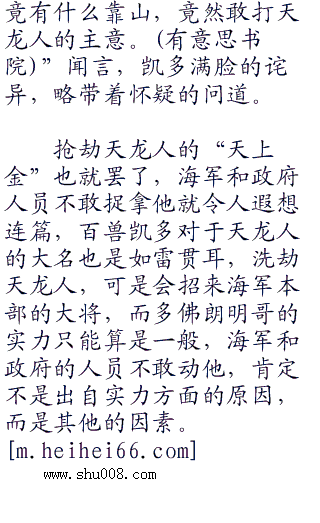 竟有什么靠山，竟然敢打天
龙人的主意。(有意思书
院)”闻言，凯多满脸的诧
异，略带着怀疑的问道。
抢劫天龙人的“天上
金”也就罢了，海军和政府
人员不敢捉拿他就令人遐想
连篇，百兽凯多对于天龙人
的大名也是如雷贯耳，洗劫
天龙人，可是会招来海军本
部的大将，而多佛朗明哥的
实力只能算是一般，海军和
政府的人员不敢动他，肯定
不是出自实力方面的原因，
而是其他的因素。
[m.heihei66.com]
www.shu008.com